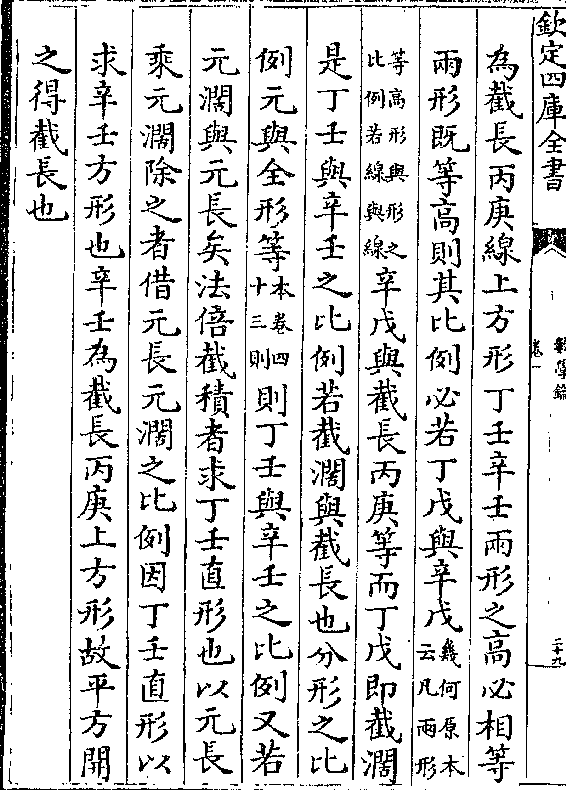 欽定四庫全書
數學鑰
卷一
二十九
為截長丙庚線上方形丁壬辛壬兩形之高必相等
兩形既等高則其比例必若丁戊與辛戊幾何原本云凡兩形
等高形與形之比例若線與線辛戊與截長丙庚等而丁戊即截濶
是丁壬與辛壬之比例若截濶與截長也分形之比
例元與全形等本卷四十三則則丁壬與辛壬之比例又若
元濶與元長矣法倍截積者求丁壬直形也以元長
乘元濶除之者借元長元濶之比例因丁壬直形以
求辛壬方形也辛壬為截長丙庚上方形故平方開
之得截長也